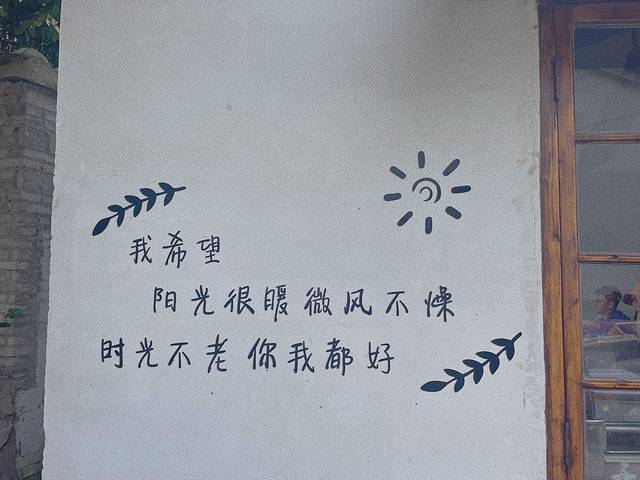 我希望
阳光很暖微风不燥
时光不老你我都好